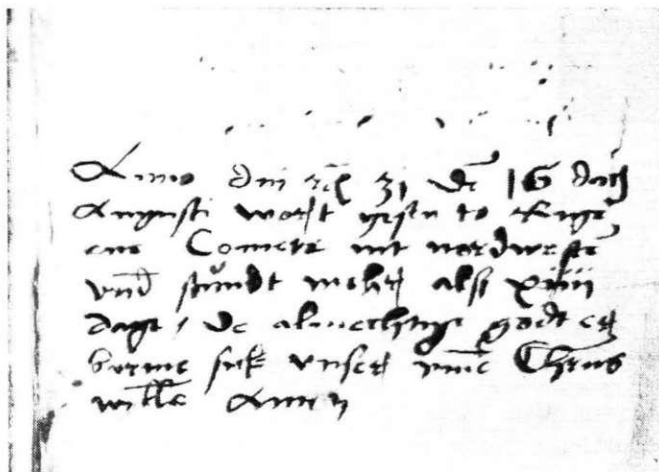 Anno dni ꝛc 31 dē 16 dach
Augusti wart gesen to Rige
ene Cometa int nordwestē
vnd stundt mehr alse xiiii
dage / de almechtige godt er
barme sick vnser vmme Christus
wille Amen